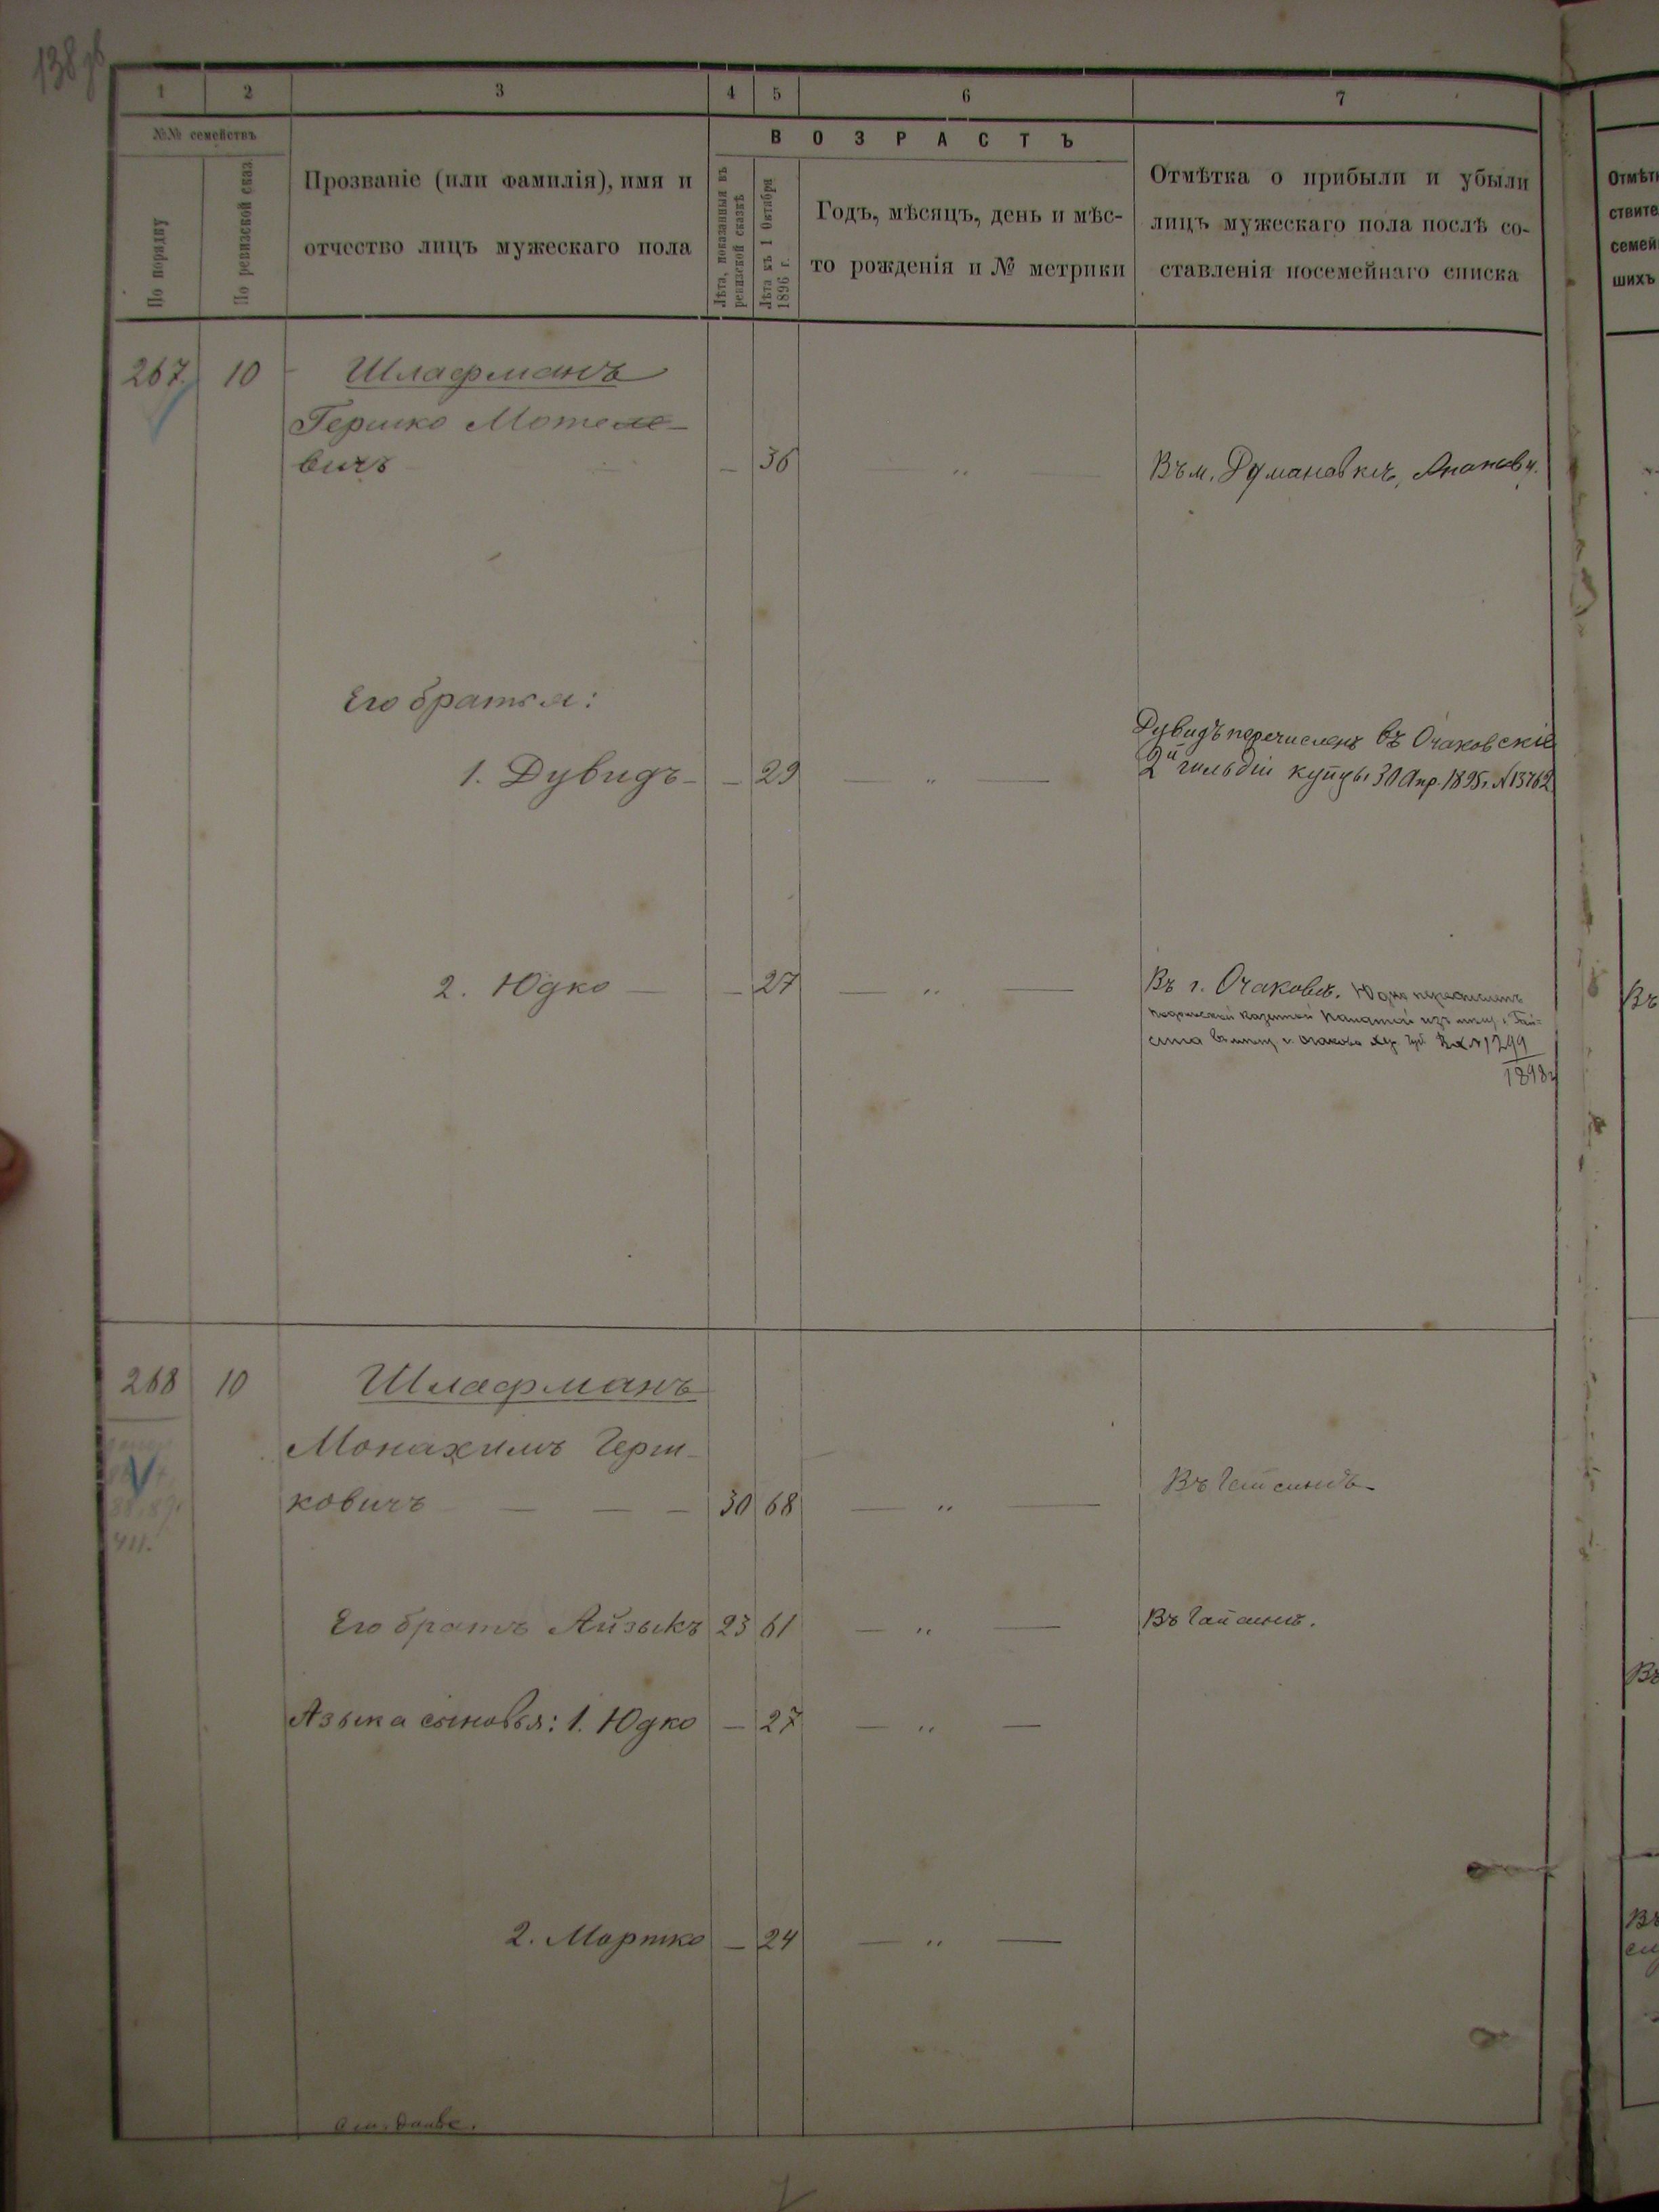 138 об
1 2 3 4 5 6 7
№№ семействъ
По порядку
По ревизской сказ
Прозваніе (или фамилія), имя и
отчество лицъ мужескаго пола
ВОЗРАСТЪ
Лѣта, показанныя въ
ревизской сказкѣ
Лѣта къ 1 Октября
1896 г.
Годъ, мѣсяцъ, день и мѣс-
то рожденія и № метрики
Отмѣтка о прибыли и убыли
лицъ мужескаго пола послѣ со-
ставленія посемейнаго списка
267. 10 Шлафманъ
Гершко Мотеле-
вичъ — 36 — „ — Въ м. Думановкѣ, Ананьев у.
Его братья:
1. Дувидъ — 29 — „ — Дувидъ перечисленъ въ Очаковскіе
2й гильдіи купцы 30 Апр. 1895г. №13762
2. Юдко — 27 — „ — Въ г. Очаковѣ. Юдко перечисленъ
Подольской Казенной Палатой изъ мѣщ. г. Гай-
сина въ мѣщ. г. Очакова Хер. Губ. Вх. №1299
1898г
268 10 Шлафманъ
Монахимъ Герш-
ковичъ — — — 30 68 — „ — Въ Гайсинѣ
Его братъ Айзыкъ 23 61 — „ — Въ Гайсинѣ.
Азыка сыновья: 1. Юдко — 27 — „ —
2. Мортко — 24 — „ —
88, 89.
411.
Отмѣт
ствите
семей
шихъ
Въ
Въ
Въ